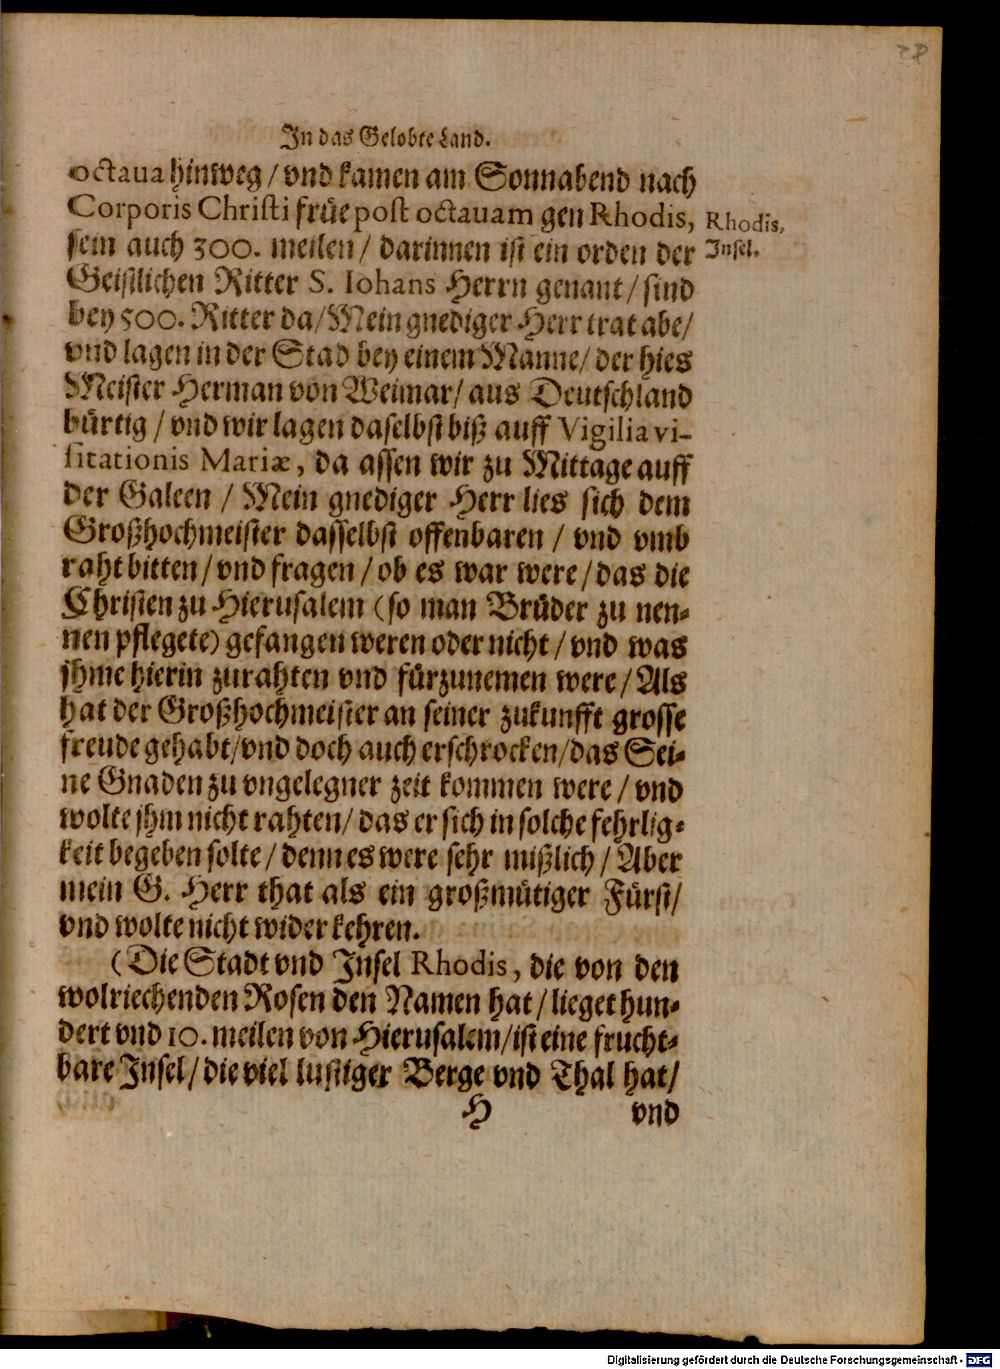 28
In das Gelobte Land.
octaua hinweg / vnd kamen am Sonnabend nach
Corporis Christi früe post octauam gen Rhodis,
Rhodis,
Insel.
sein auch 300. meilen / darinnen ist ein orden der
Geistlichen Ritter S. Iohans Herrn genant / sind
bey 500. Ritter da / Mein gnediger Herr trat abe /
vnd lagen in der Stad bey einem Manne / der hies
Meister Herman von Weimar / aus Deutschland
bürtig / vnd wir lagen daselbst biß auff Vigilia vi-
sitationis Mariæ, da assen wir zu Mittage auff
der Galeen / Mein gnediger Herr lies sich dem
Großhochmeister dasselbst offenbaren / vnd vmb
raht bitten / vnd fragen / ob es war were / das die
Christen zu Hierusalem (so man Brüder zu nen-
nen pflegete) gefangen weren oder nicht / vnd was
jhme hierin zurahten vnd fürzunemen were / Als
hat der Großhochmeister an seiner zukunfft grosse
freude gehabt / vnd doch auch erschrocken / das Sei-
ne Gnaden zu vngelegner zeit kommen were / vnd
wolte jhm nicht rahten / das er sich in solche fehrlig-
keit begeben solte / denn es were sehr mißlich / Aber
mein G. Herr that als ein großmütiger Fürst /
vnd wolte nicht wider kehren.
(Die Stadt vnd Insel Rhodis, die von den
wolriechenden Rosen den Namen hat / lieget hun-
dert vnd 10. meilen von Hierusalem / ist eine frucht-
bare Insel / die viel lustiger Berge vnd Thal hat /
H vnd
Digitalisierung gefördert durch die Deutsche Forschungsgemeinschaft - DFG